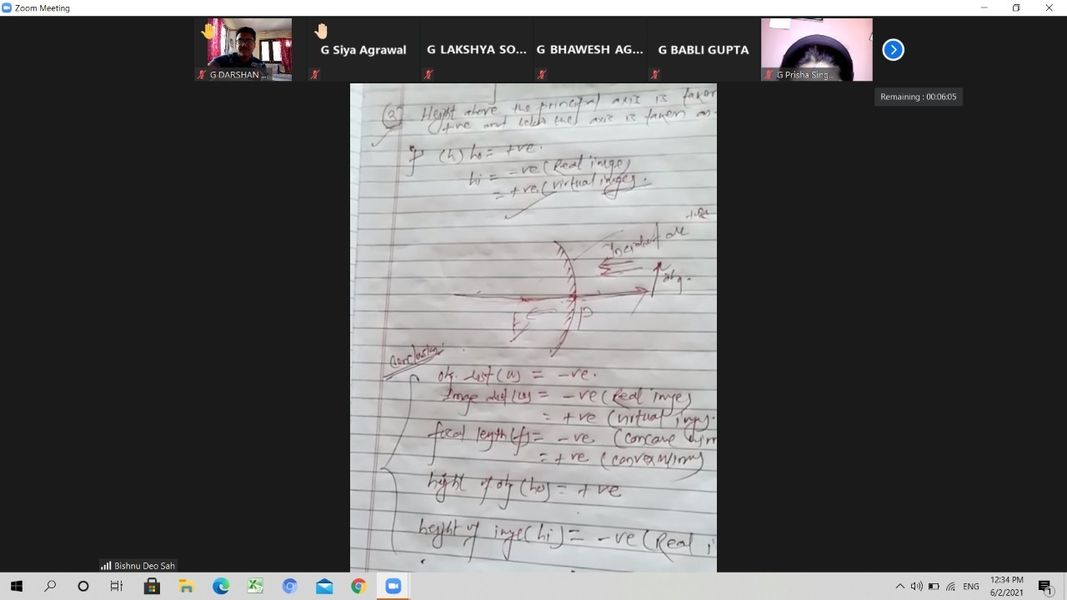 Zoom Meeting
G DARSHAN ...
G Siya Agrawal
G LAKSHYA SO...
G BHAWESH AG...
G BABLI GUPTA
G Prisha Sing...
Remaining : 00:06:05
(3) Height above the principal axis is taken
+ive and below the axis is taken as
(h) ho = +ve.
hi = -ve (Real imge)
= +ve (virtual imge).
+ve
Incident
obj.
F
P
Conclusion
obj. dist (u) = -ve.
Image dist (v) = -ve (Real imge)
= +ve (virtual imge).
focal legth (f) = -ve (concave mirr
= +ve (convex mirror)
hight of obj (ho) = +ve
height of imge (hi) = -ve (Real i
Bishnu Deo Sah
ENG
12:34 PM
6/2/2021
1